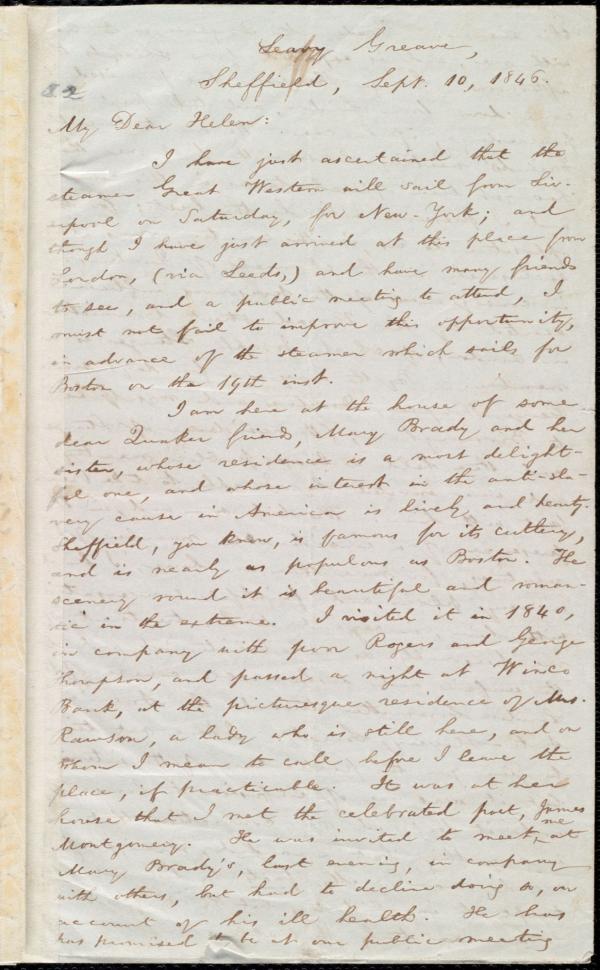 Leavy Greave,
Sheffield, Sept. 10, 1846.
82
My Dear Helen:
I have just ascertained that the
steamer Great Western will sail from Liv-
erpool on Saturday, for New-York; and
though I have just arrived at this place from
London, (via Leeds,) and have many friends
to see, and a public meeting to attend, I
must not fail to improve this opportunity,
in advance of the steamer which sails for
Boston on the 19th inst.
I am here at the house of some
dear Quaker friend, Mary Brady and her
sister, whose residence is a most delight-
ful one, and whose interest in the anti-sla-
very cause in America is lively and hearty.
Sheffield, you know, is famous for its cutlery,
and is nearly as populous as Boston. The
scenery round it is beautiful and roman-
tic in the extreme. I visited it in 1840,
in company with poor Rogers and George
Thompson, and passed a night at Winco
Bank, at the picturesque residence of Mrs.
Rawson, a lady who is still here, and on
whom I mean to call before I leave the
place, if practicable. It was at her
house that I met the celebrated poet, James
Montgomery. He was invited to meet me, at
Mary Brady's, last evening, in company
with others, but had to decline doing so, on
account of his ill health. He has
has promised to be at our public meeting